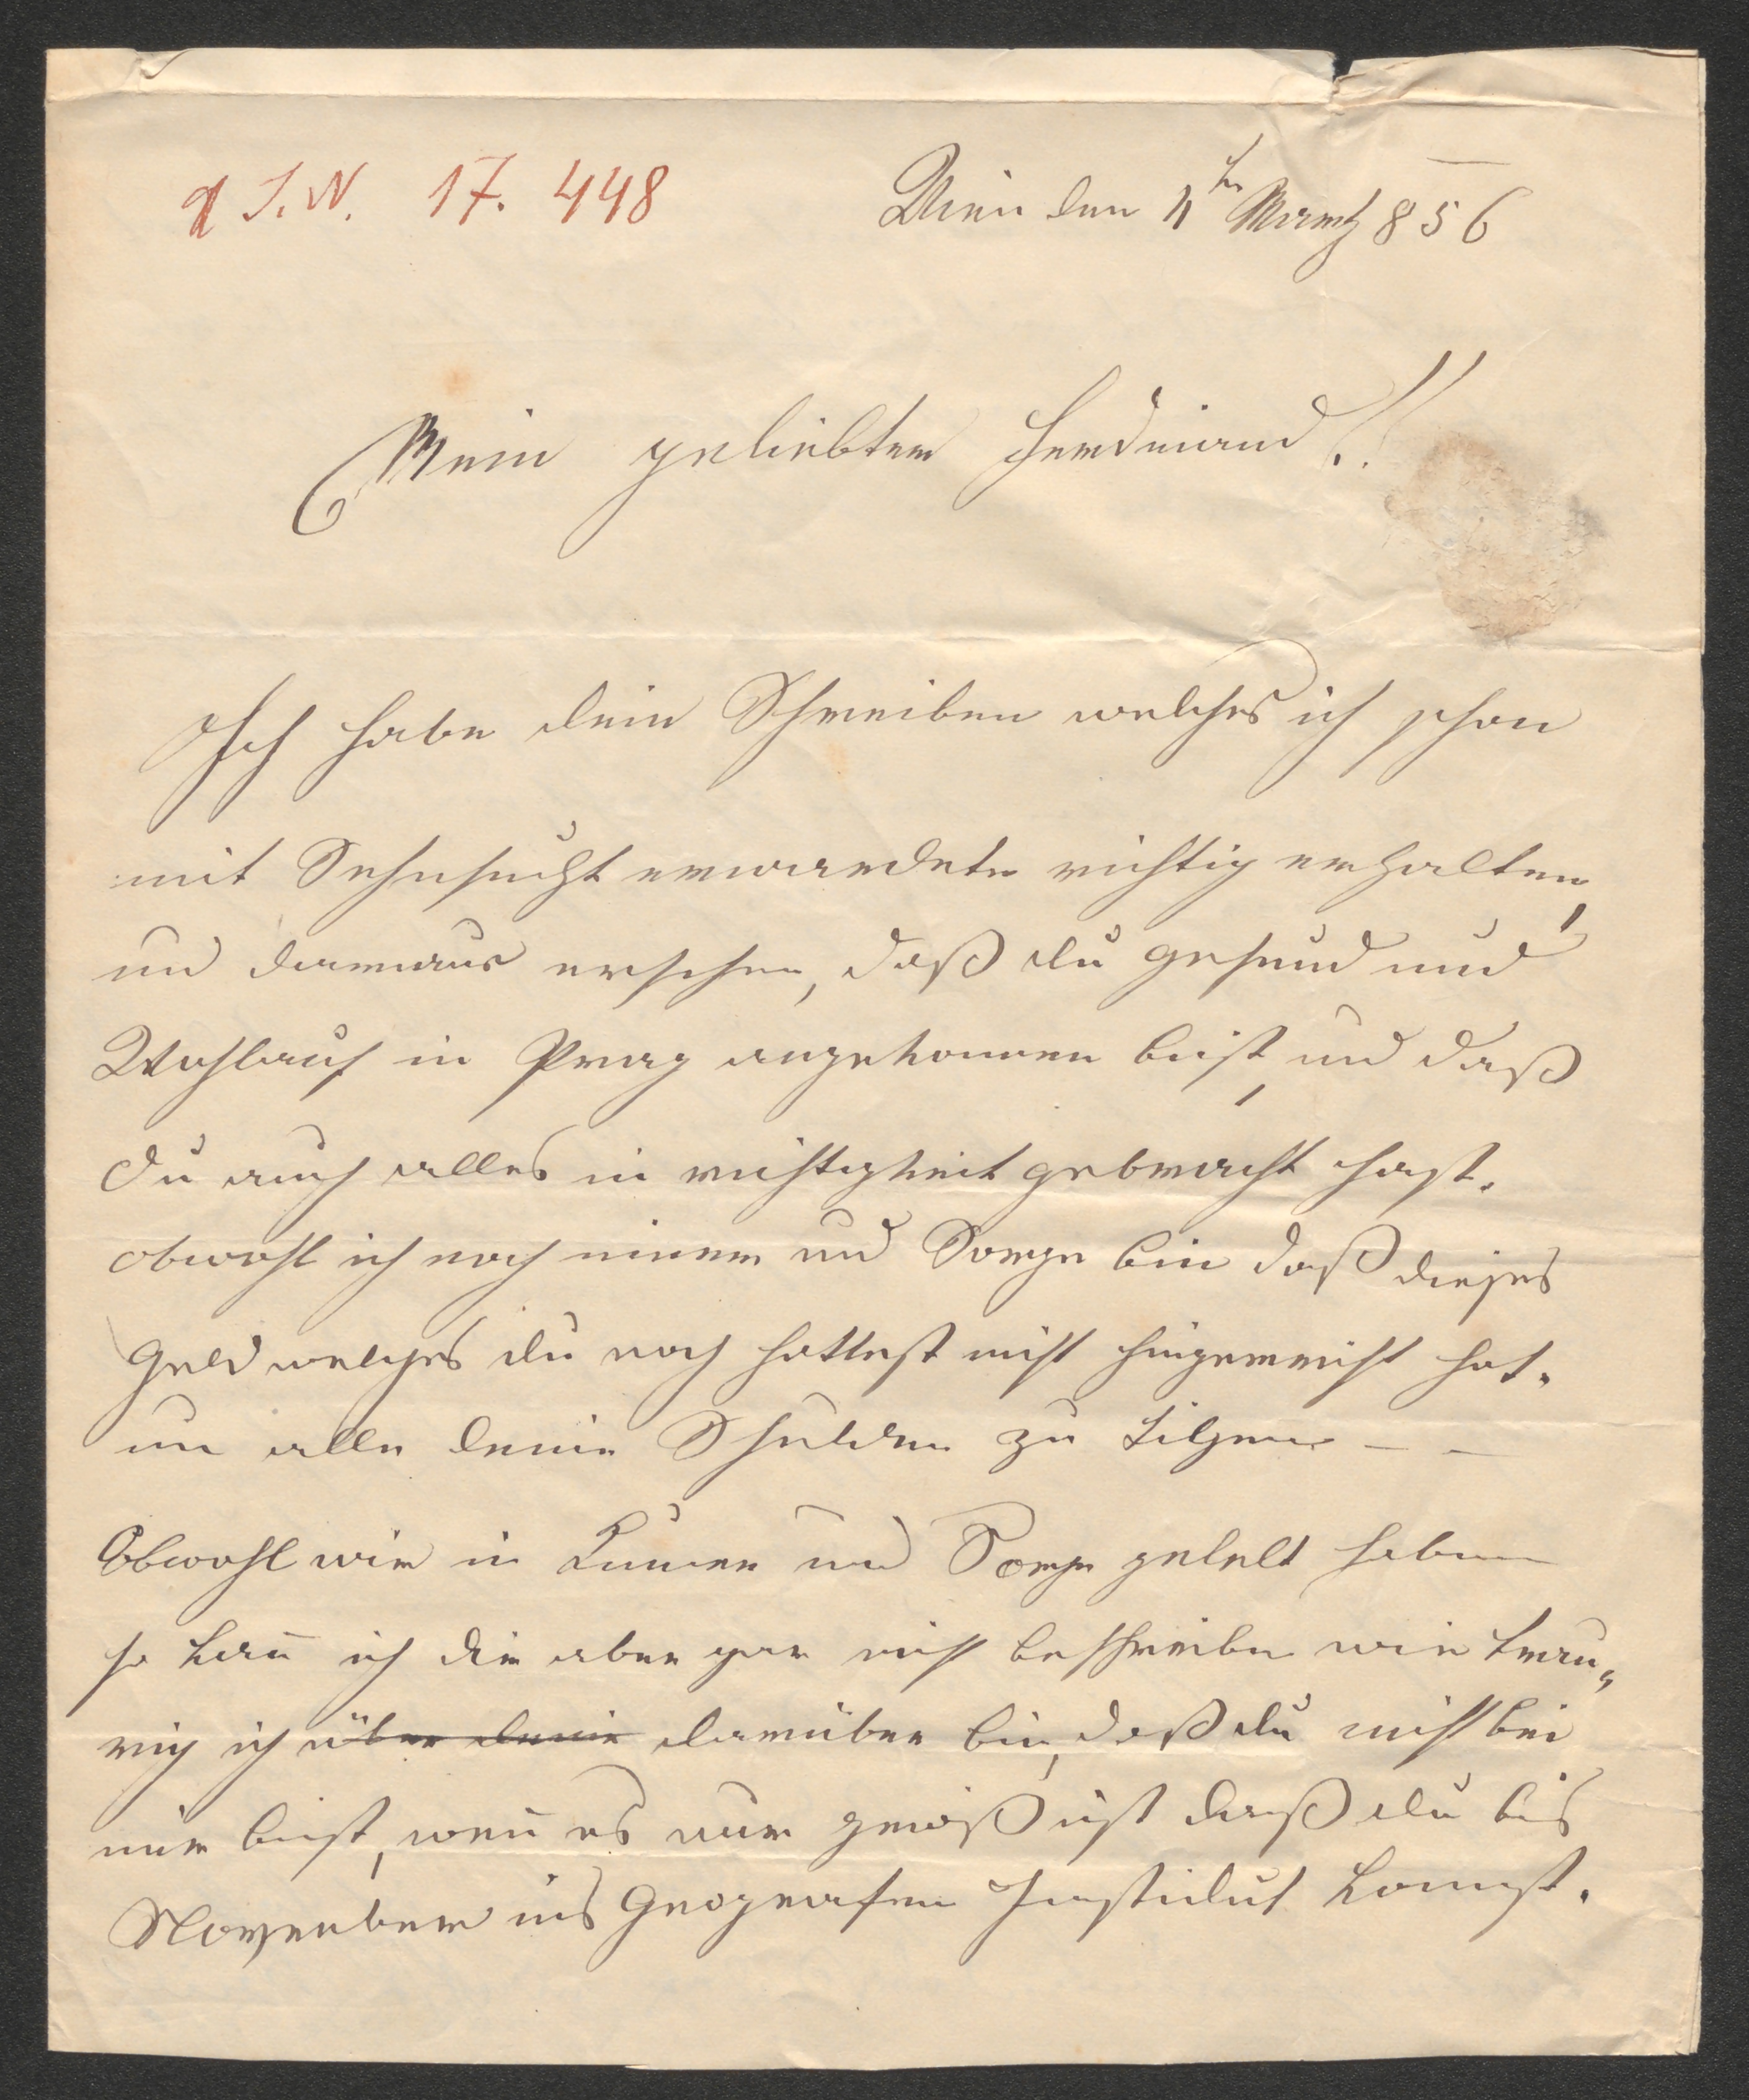 J. N. 17.448
Wien den 11ten Maertz 856
Mein geliebter Ferdinand!!
Ich habe dein Schreiben welches ich schon
mit Sehnsucht erwardete richtig erhalten,
und daraus ersehen, daß du gesund und
Wohlauf in Prag angekommen bist, und daß
du auch alles in richtigkeit gebracht hast.
obwohl ich noch immer und Sorge bin daß dieses
Geld welches du noch hattest nicht hingereicht hat.
um alle deine Schulden zu tilgen – –
Obwohl wir in Kumer und Sorge gelebt haben
so kan̄ ich dir aber gar nicht beschreiben wie trau„
rig ich über deine darüber bin, daß du nicht bei
mir bist, wen̄ es nur gewiß ist daß du bis
November ins Geografen Institut komst.